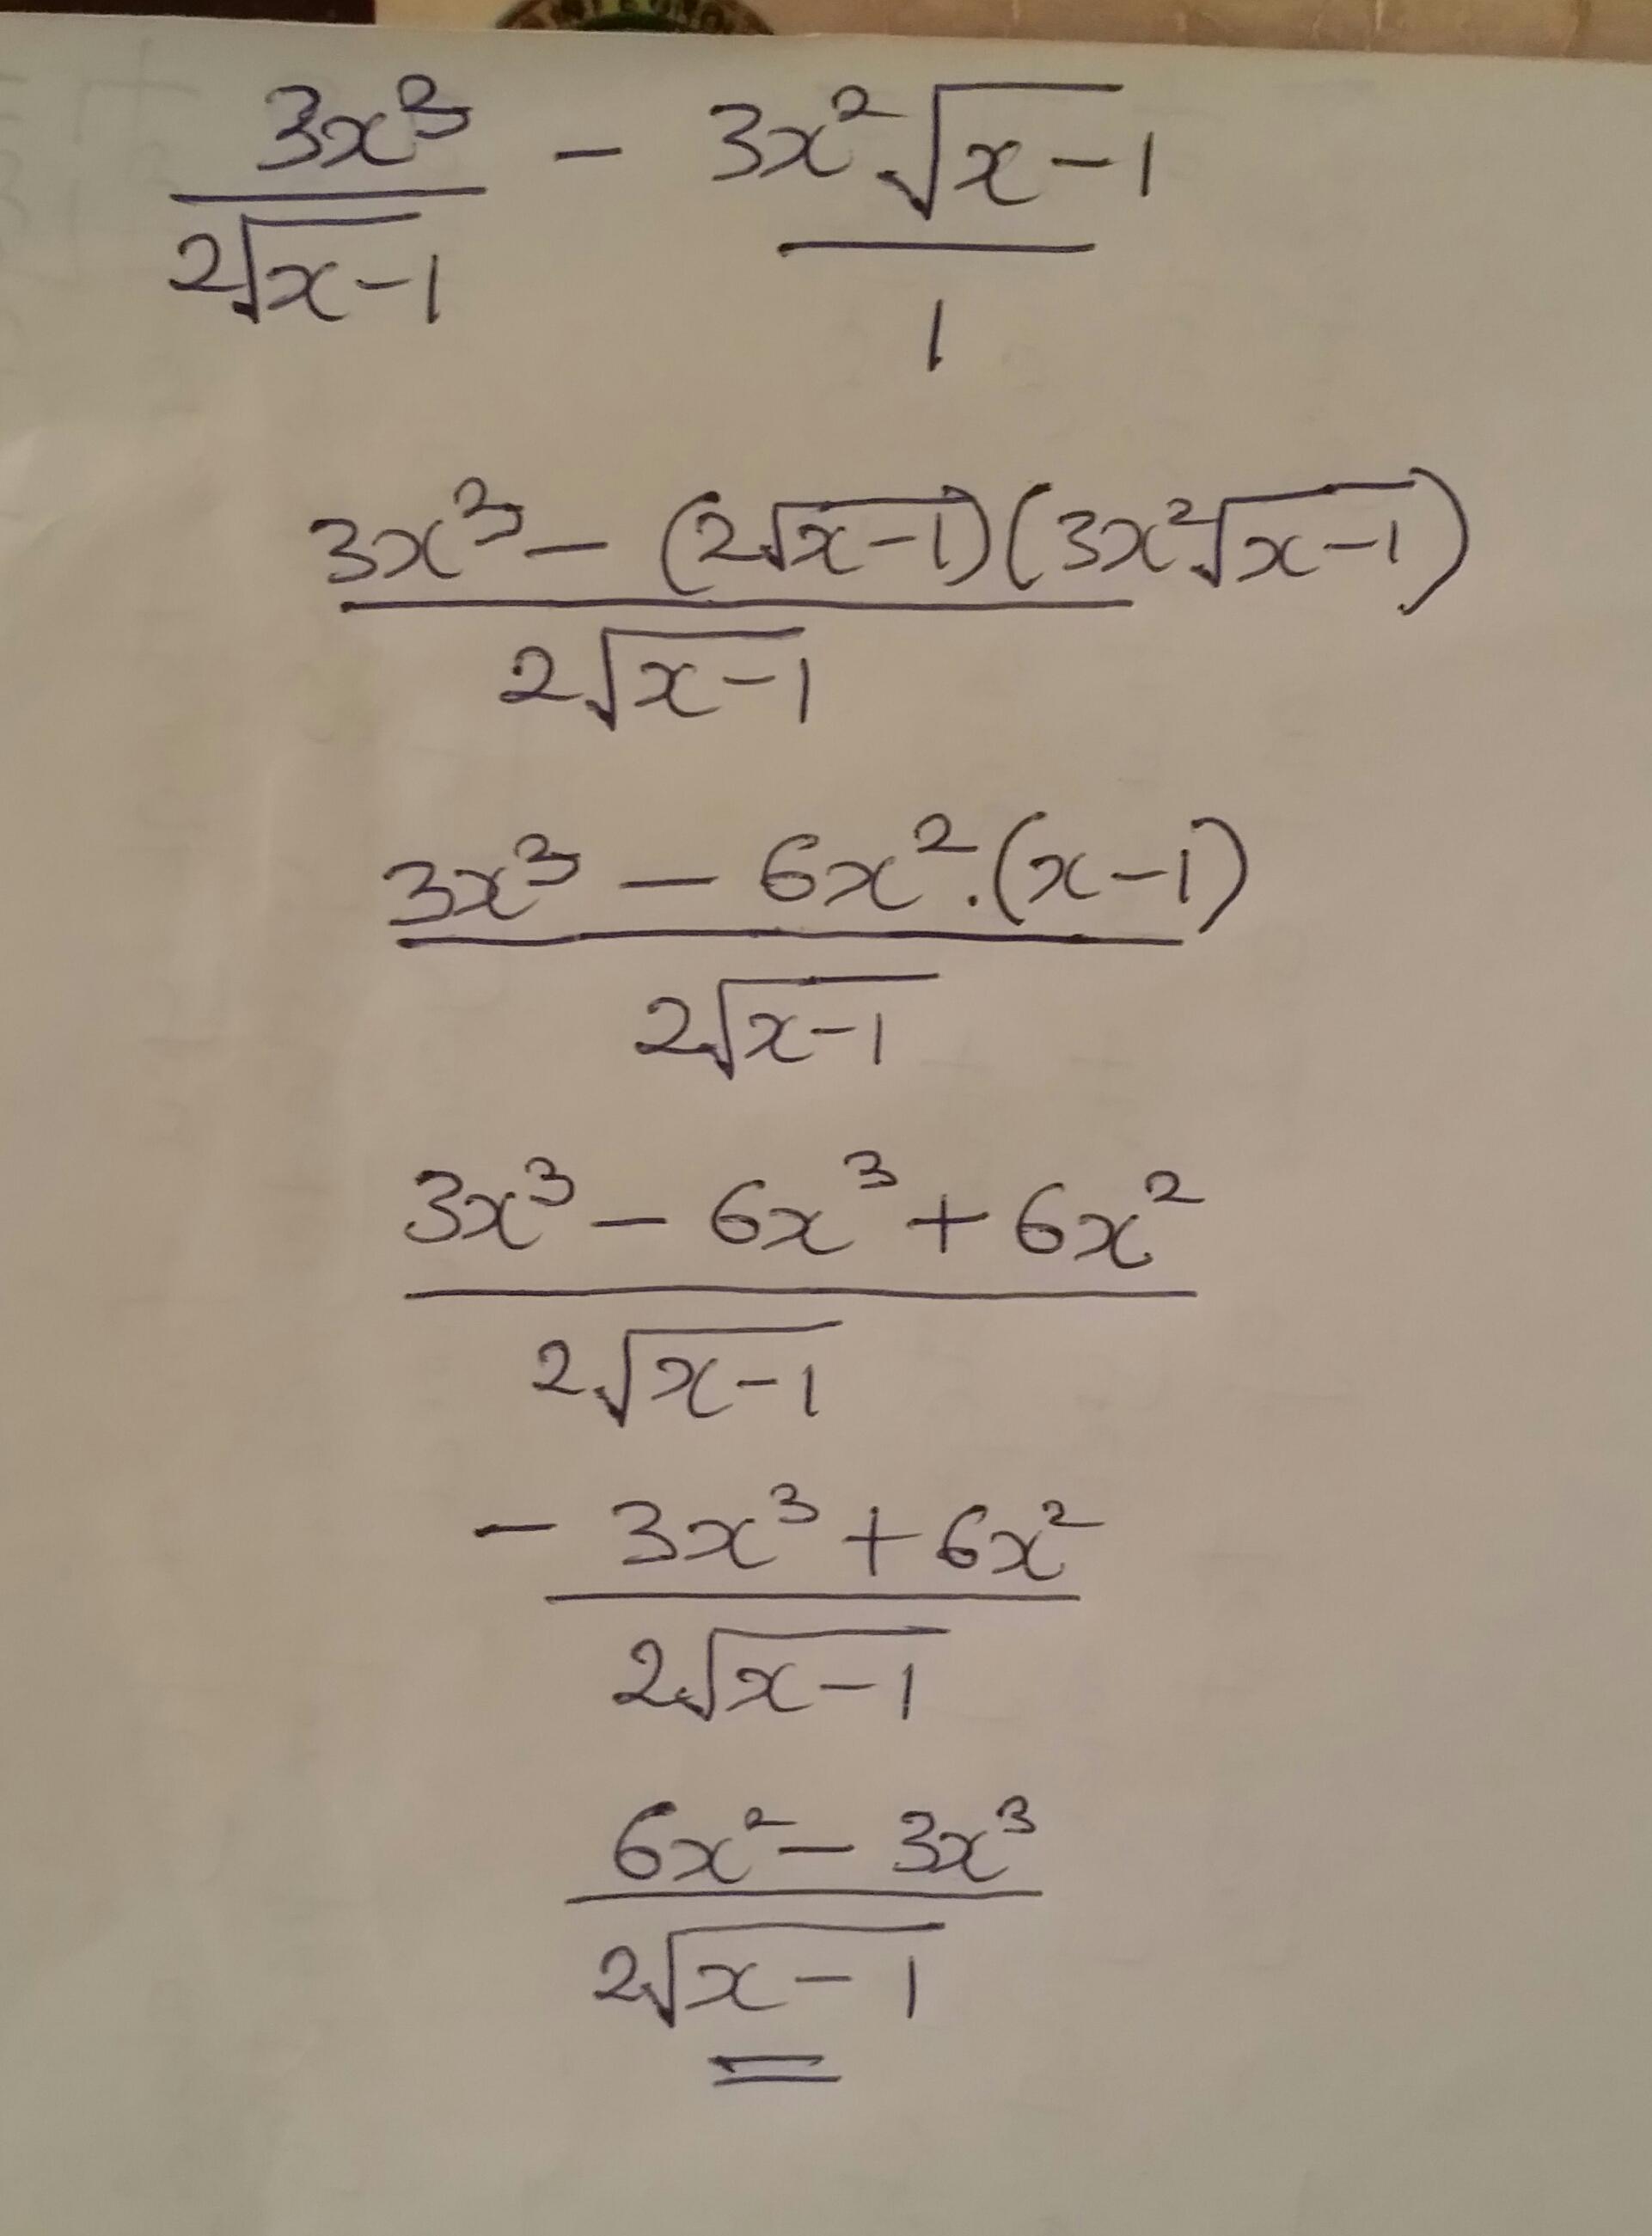 3x³/2√x-1 - 3x²√x-1/1
3x³ - (2√x-1)(3x²√x-1)/2√x-1
3x³ - 6x².(x-1)/2√x-1
3x³ - 6x³ + 6x²/2√x-1
- 3x³ + 6x²/2√x-1
6x² - 3x³/2√x-1